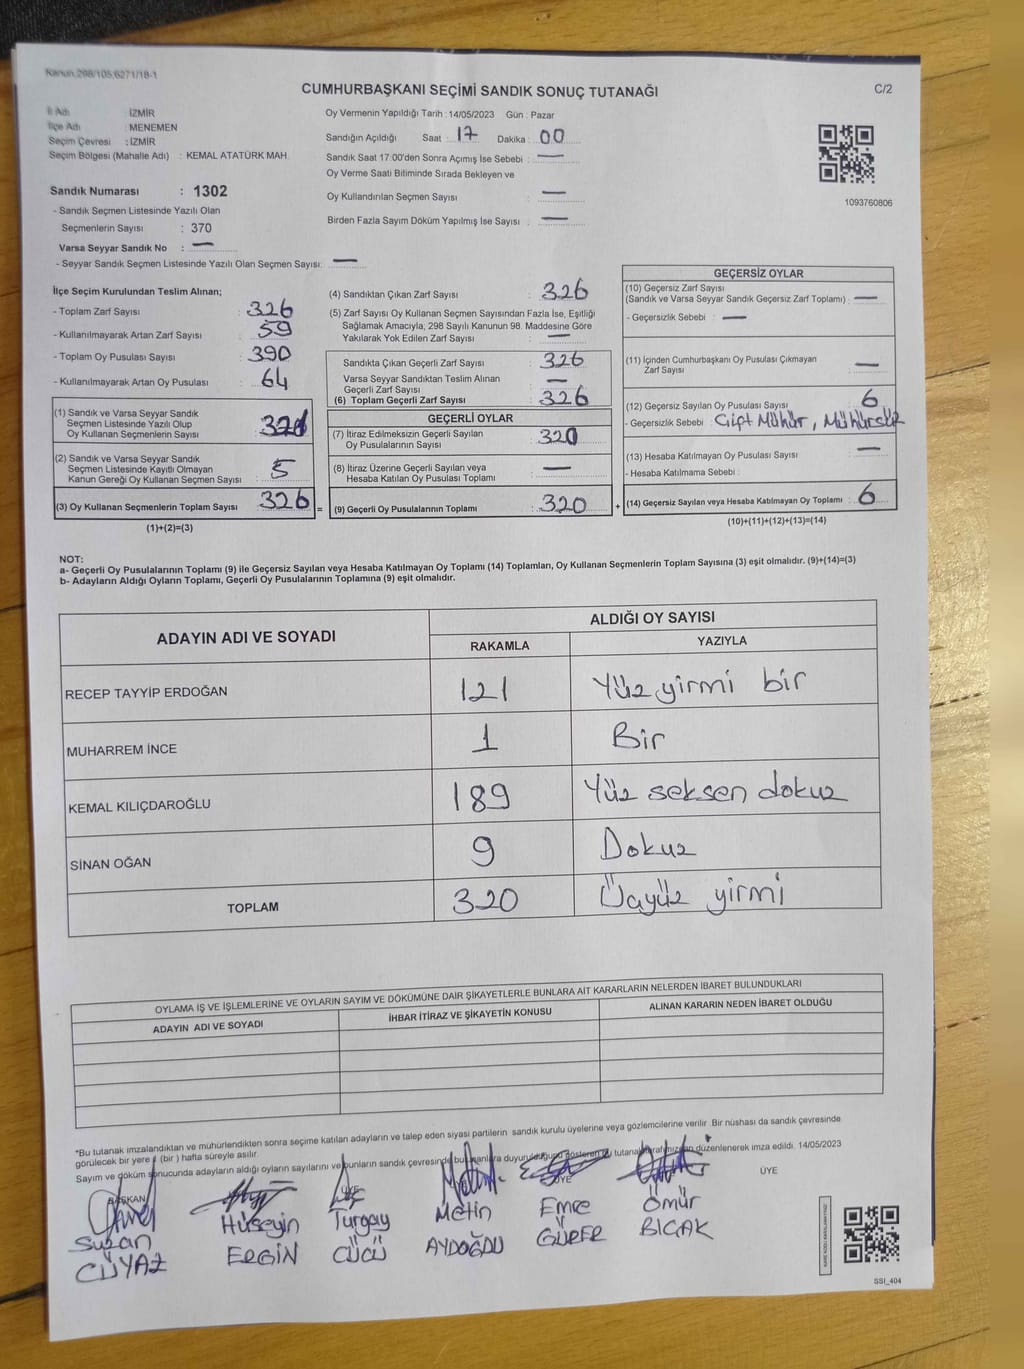 Kanun 298/105;6271/18-1
CUMHURBAŞKANI SEÇİMİ SANDIK SONUÇ TUTANAĞI
C/2
İl Adı : İZMİR
İlçe Adı : MENEMEN
Seçim Çevresi : İZMİR
Seçim Bölgesi (Mahalle Adı) : KEMAL ATATÜRK MAH.
Sandık Numarası : 1302
- Sandık Seçmen Listesinde Yazılı Olan
Seçmenlerin Sayısı : 370
Varsa Seyyar Sandık No : —
- Seyyar Sandık Seçmen Listesinde Yazılı Olan Seçmen Sayısı: —
Oy Vermenin Yapıldığı Tarih : 14/05/2023 Gün : Pazar
Sandığın Açıldığı Saat : 17 Dakika : 00
Sandık Saat 17:00'den Sonra Açımış İse Sebebi : —
Oy Verme Saati Bitiminde Sırada Bekleyen ve
Oy Kullandırılan Seçmen Sayısı : —
Birden Fazla Sayım Döküm Yapılmış İse Sayısı : —
1093760806
İlçe Seçim Kurulundan Teslim Alınan;
- Toplam Zarf Sayısı : 326
- Kullanılmayarak Artan Zarf Sayısı : 59
- Toplam Oy Pusulası Sayısı : 390
- Kullanılmayarak Artan Oy Pusulası : 64
(1) Sandık ve Varsa Seyyar Sandık
Seçmen Listesinde Yazılı Olup
Oy Kullanan Seçmenlerin Sayısı :
(2) Sandık ve Varsa Seyyar Sandık
Seçmen Listesinde Kayıtlı Olmayan
Kanun Gereği Oy Kullanan Seçmen Sayısı : 5
(3) Oy Kullanan Seçmenlerin Toplam Sayısı : 326 =
(1)+(2)=(3)
(4) Sandıktan Çıkan Zarf Sayısı : 326
(5) Zarf Sayısı Oy Kullanan Seçmen Sayısından Fazla İse, Eşitliği
Sağlamak Amacıyla, 298 Sayılı Kanunun 98. Maddesine Göre
Yakılarak Yok Edilen Zarf Sayısı : —
Sandıkta Çıkan Geçerli Zarf Sayısı : 326
Varsa Seyyar Sandıktan Teslim Alınan
Geçerli Zarf Sayısı : —
(6) Toplam Geçerli Zarf Sayısı : 326
GEÇERLİ OYLAR
(7) İtiraz Edilmeksizin Geçerli Sayılan
Oy Pusulalarının Sayısı : 320
(8) İtiraz Üzerine Geçerli Sayılan veya
Hesaba Katılan Oy Pusulası Toplamı : —
(9) Geçerli Oy Pusulalarının Toplamı : 320 +
GEÇERSİZ OYLAR
(10) Geçersiz Zarf Sayısı
(Sandık ve Varsa Seyyar Sandık Geçersiz Zarf Toplamı) : —
- Geçersizlik Sebebi : —
(11) İçinden Cumhurbaşkanı Oy Pusulası Çıkmayan
Zarf Sayısı : —
(12) Geçersiz Sayılan Oy Pusulası Sayısı : 6
- Geçersizlik Sebebi : Çift Mühür, Mühürsüz
(13) Hesaba Katılmayan Oy Pusulası Sayısı : —
- Hesaba Katılmama Sebebi :
(14) Geçersiz Sayılan veya Hesaba Katılmayan Oy Toplamı : 6
(10)+(11)+(12)+(13)=(14)
NOT:
a- Geçerli Oy Pusulalarının Toplamı (9) ile Geçersiz Sayılan veya Hesaba Katılmayan Oy Toplamı (14) Toplamları, Oy Kullanan Seçmenlerin Toplam Sayısına (3) eşit olmalıdır. (9)+(14)=(3)
b- Adayların Aldığı Oyların Toplamı, Geçerli Oy Pusulalarının Toplamına (9) eşit olmalıdır.
ADAYIN ADI VE SOYADI ALDIĞI OY SAYISI
RAKAMLA YAZIYLA
RECEP TAYYİP ERDOĞAN 121 Yüz yirmi bir
MUHARREM İNCE 1 Bir
KEMAL KILIÇDAROĞLU 189 Yüz seksen dokuz
SİNAN OĞAN 9 Dokuz
TOPLAM 320 Üçyüz yirmi
OYLAMA İŞ VE İŞLEMLERİNE VE OYLARIN SAYIM VE DÖKÜMÜNE DAİR ŞİKAYETLERLE BUNLARA AİT KARARLARIN NELERDEN İBARET BULUNDUKLARI
ADAYIN ADI VE SOYADI İHBAR İTİRAZ VE ŞİKAYETİN KONUSU ALINAN KARARIN NEDEN İBARET OLDUĞU
*Bu tutanak imzalandıktan ve mühürlendikten sonra seçime katılan adayların ve talep eden siyasi partilerin sandık kurulu üyelerine veya gözlemcilerine verilir. Bir nüshası da sandık çevresinde
görülecek bir yere (bir) hafta süreyle asılır.
Sayım ve döküm sonucunda adayların aldığı oyların sayılarını ve bunların sandık çevresinde duyurulduğunu gösteren tutanak düzenlenerek imza edildi. 14/05/2023
BAŞKAN ÜYE ÜYE
Suzan Hüseyin Turgay Metin Emre Ömür
CÜYAZ ERGİN CÜCÜ AYDOĞDU GÜRER BIÇAK
SSI_404